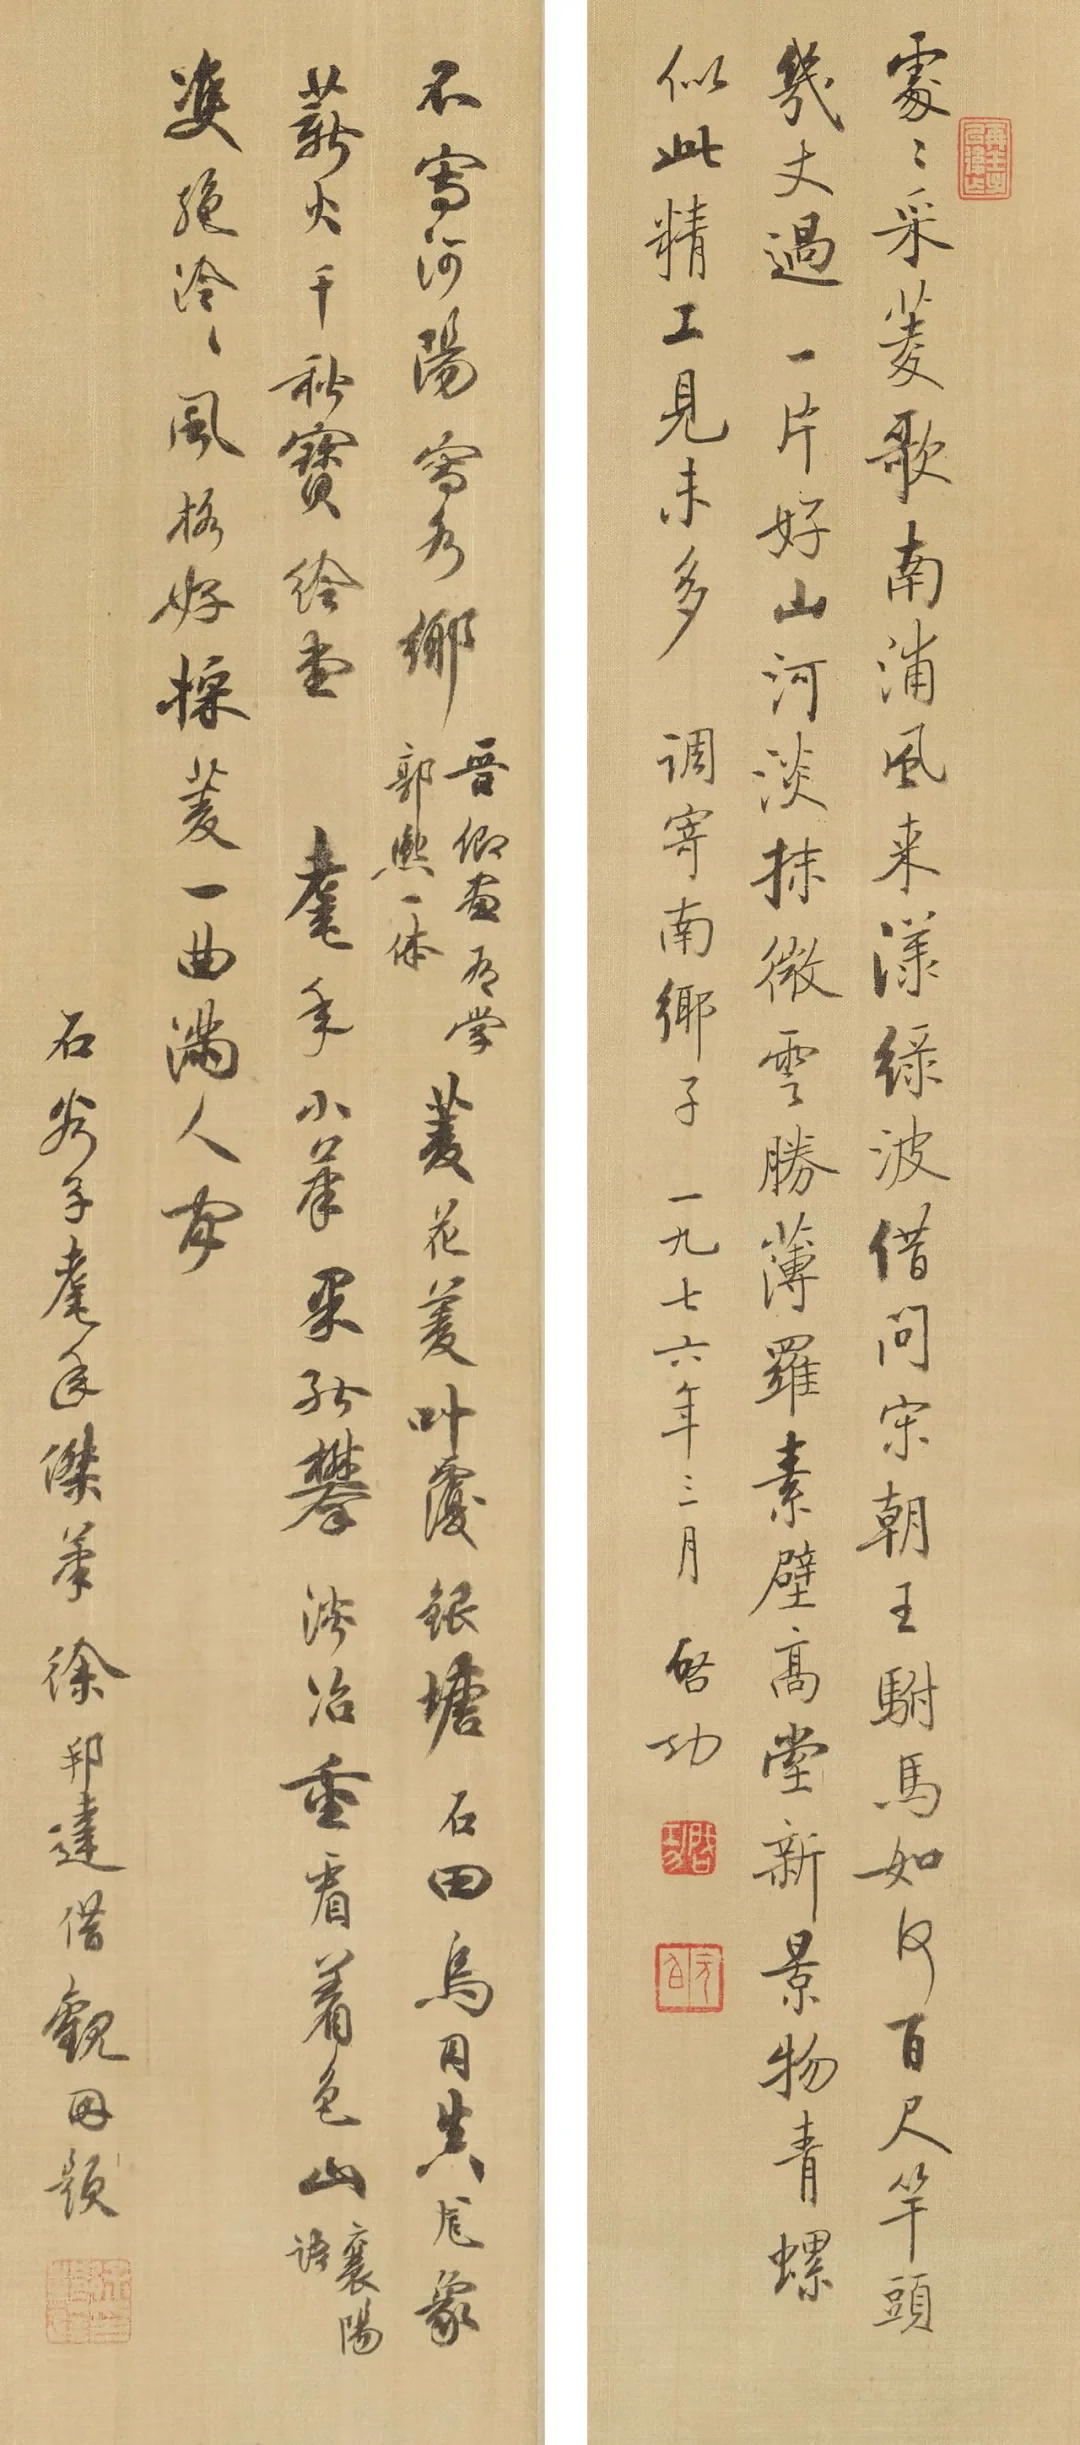 處〻采菱歌南浦風来漾綠波借問宋朝王駙馬如何百尺竿頭
幾丈過一片好山河淡抹微雲勝薄羅素壁高堂新景物青螺
似此精工見未多 调寄南鄉子 一九七六年三月 啓功
不寫河陽寫水鄉
晉卿畫有學
郭熙一体
菱花菱叶覆銀塘 石田烏目真龙象
薪火千秋寶繪堂 耄年小筆果能攀 淡冶重看着色山
襄陽
語
雙艷泠〻風格好採菱一曲滿人間
石谷子耄年傑筆徐邦達借觀因題